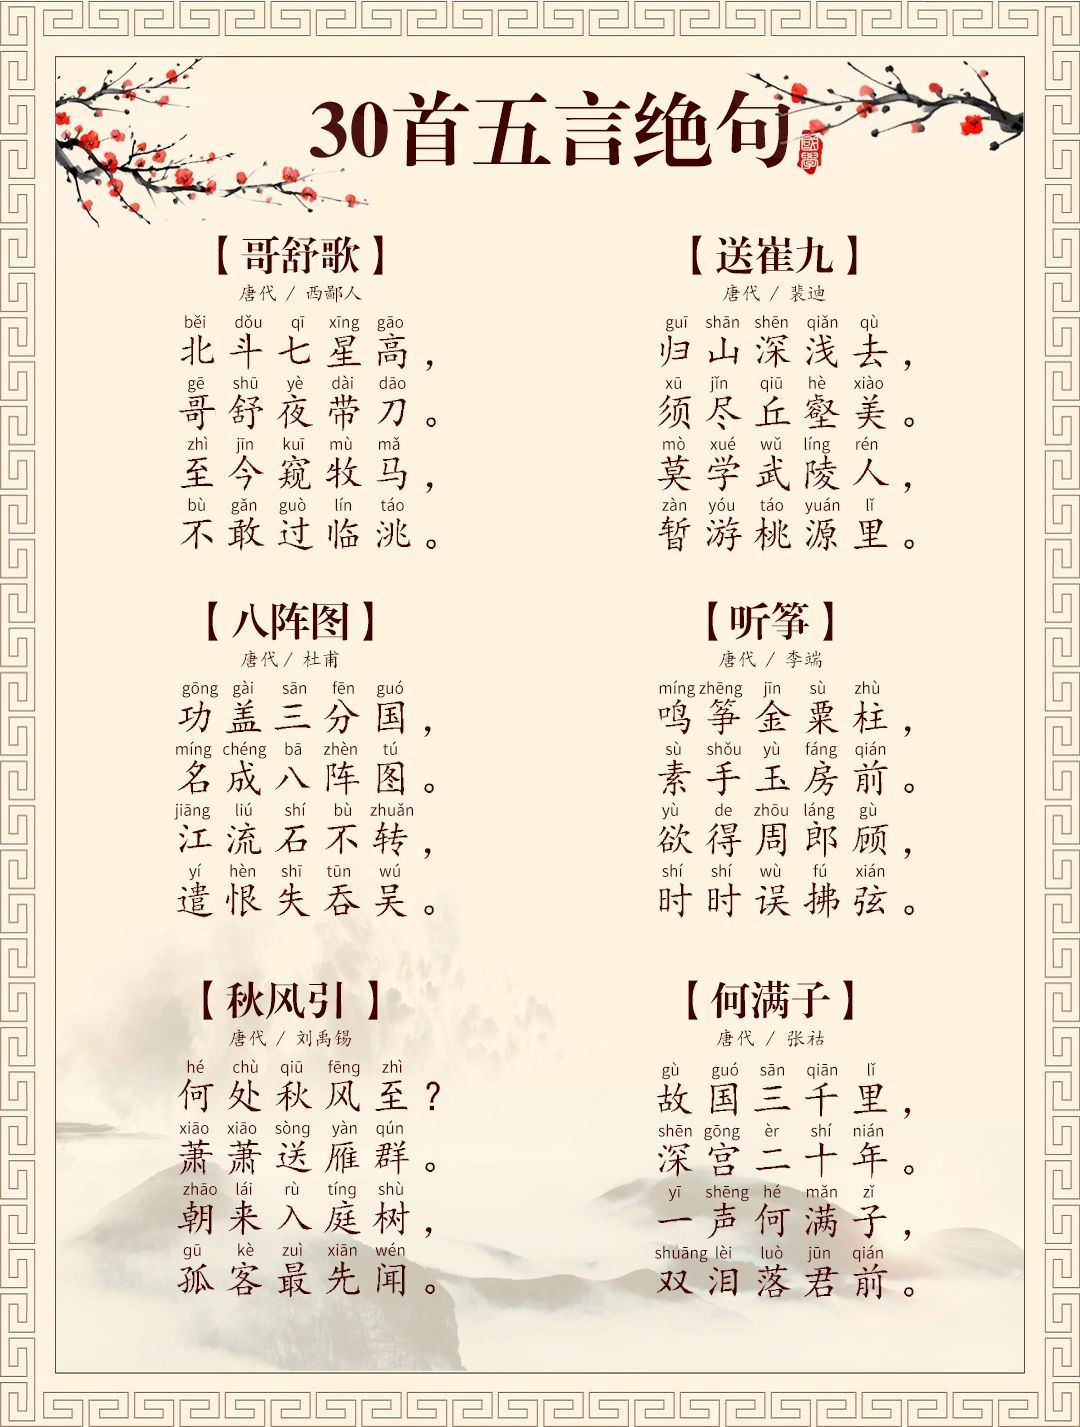 30首五言绝句
國學
【哥舒歌】
唐代 / 西鄙人
běi dǒu qī xīng gāo
北斗七星高，
gē shū yè dài dāo
哥舒夜带刀。
zhì jīn kuī mù mǎ
至今窥牧马，
bù gǎn guò lín táo
不敢过临洮。
【送崔九】
唐代 / 裴迪
guī shān shēn qiǎn qù
归山深浅去，
xū jǐn qiū hè xiào
须尽丘壑美。
mò xué wǔ líng rén
莫学武陵人，
zàn yóu táo yuán lǐ
暂游桃源里。
【八阵图】
唐代 / 杜甫
gōng gài sān fēn guó
功盖三分国，
míng chéng bā zhèn tú
名成八阵图。
jiāng liú shí bù zhuǎn
江流石不转，
yí hèn shī tūn wú
遣恨失吞吴。
【听筝】
唐代 / 李端
míng zhēng jīn sù zhù
鸣筝金粟柱，
sù shǒu yù fáng qián
素手玉房前。
yù de zhōu láng gù
欲得周郎顾，
shí shí wù fú xián
时时误拂弦。
【秋风引】
唐代 / 刘禹锡
hé chù qiū fēng zhì
何处秋风至？
xiāo xiāo sòng yàn qún
萧萧送雁群。
zhāo lái rù tíng shù
朝来入庭树，
gū kè zuì xiān wén
孤客最先闻。
【何满子】
唐代 / 张祜
gù guó sān qiān lǐ
故国三千里，
shēn gōng èr shí nián
深宫二十年。
yī shēng hé mǎn zǐ
一声何满子，
shuāng lèi luò jūn qián
双泪落君前。